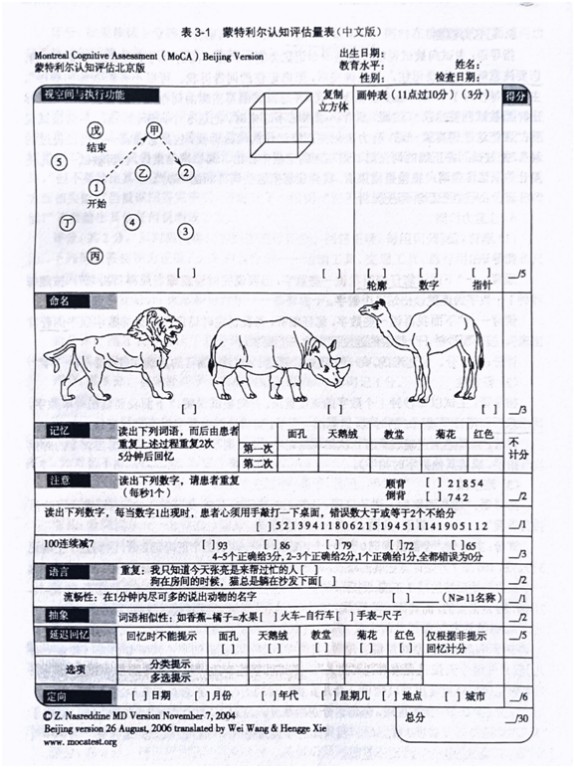 表 3-1 蒙特利尔认知评估量表(中文版)
Montreal Cognitive Assessment(MoCA) Beijing Version
蒙特利尔认知评估北京版
出生日期:
教育水平: 姓名:
性别: 检查日期:
视空间与执行功能
复制
立方体
画钟表(11点过10分)(3分)
得分
戊
结束
甲
5
乙
2
1
开始
丁
4
3
丙
[ ] [ ] [ ] [ ] [ ] __/5
轮廓 数字 指针
命名
[ ] [ ] [ ] __/3
记忆
读出下列词语,而后由患者
重复上述过程重复2次
5分钟后回忆
面孔 天鹅绒 教堂 菊花 红色
第一次
第二次
不
计分
注意
读出下列数字,请患者重复
(每秒1个)
顺背 [ ] 2 1 8 5 4
倒背 [ ] 7 4 2 __/2
读出下列数字,每当数字1出现时,患者必须用手敲打一下桌面,错误数大于或等于2个不给分
[ ] 5 2 1 3 9 4 1 1 8 0 6 2 1 5 1 9 4 5 1 1 1 4 1 9 0 5 1 1 2 __/1
100连续减7 [ ] 93 [ ] 86 [ ] 79 [ ] 72 [ ] 65
4-5个正确给3分,2-3个正确给2分,1个正确给1分,全都错误为0分 __/3
语言
重复:我只知道今天张亮是来帮过忙的人 [ ]
狗在房间的时候,猫总是躺在沙发下面 [ ] __/2
流畅性:在1分钟内尽可多的说出动物的名字 [ ] ____ (N≥11名称) __/1
抽象
词语相似性:如香蕉-橘子=水果[ ] 火车-自行车[ ] 手表-尺子 __/2
延迟回忆
回忆时不能提示
面孔 天鹅绒 教堂 菊花 红色
[ ] [ ] [ ] [ ] [ ]
仅根据非提示
回忆计分
__/5
选项
分类提示
多选提示
定向
[ ] 日期 [ ] 月份 [ ] 年代 [ ] 星期几 [ ] 地点 [ ] 城市 __/6
© Z. Nasreddine MD Version November 7, 2004
Beijing version 26 August, 2006 translated by Wei Wang & Hengge Xie
www. mocatest.org
总分 __/30